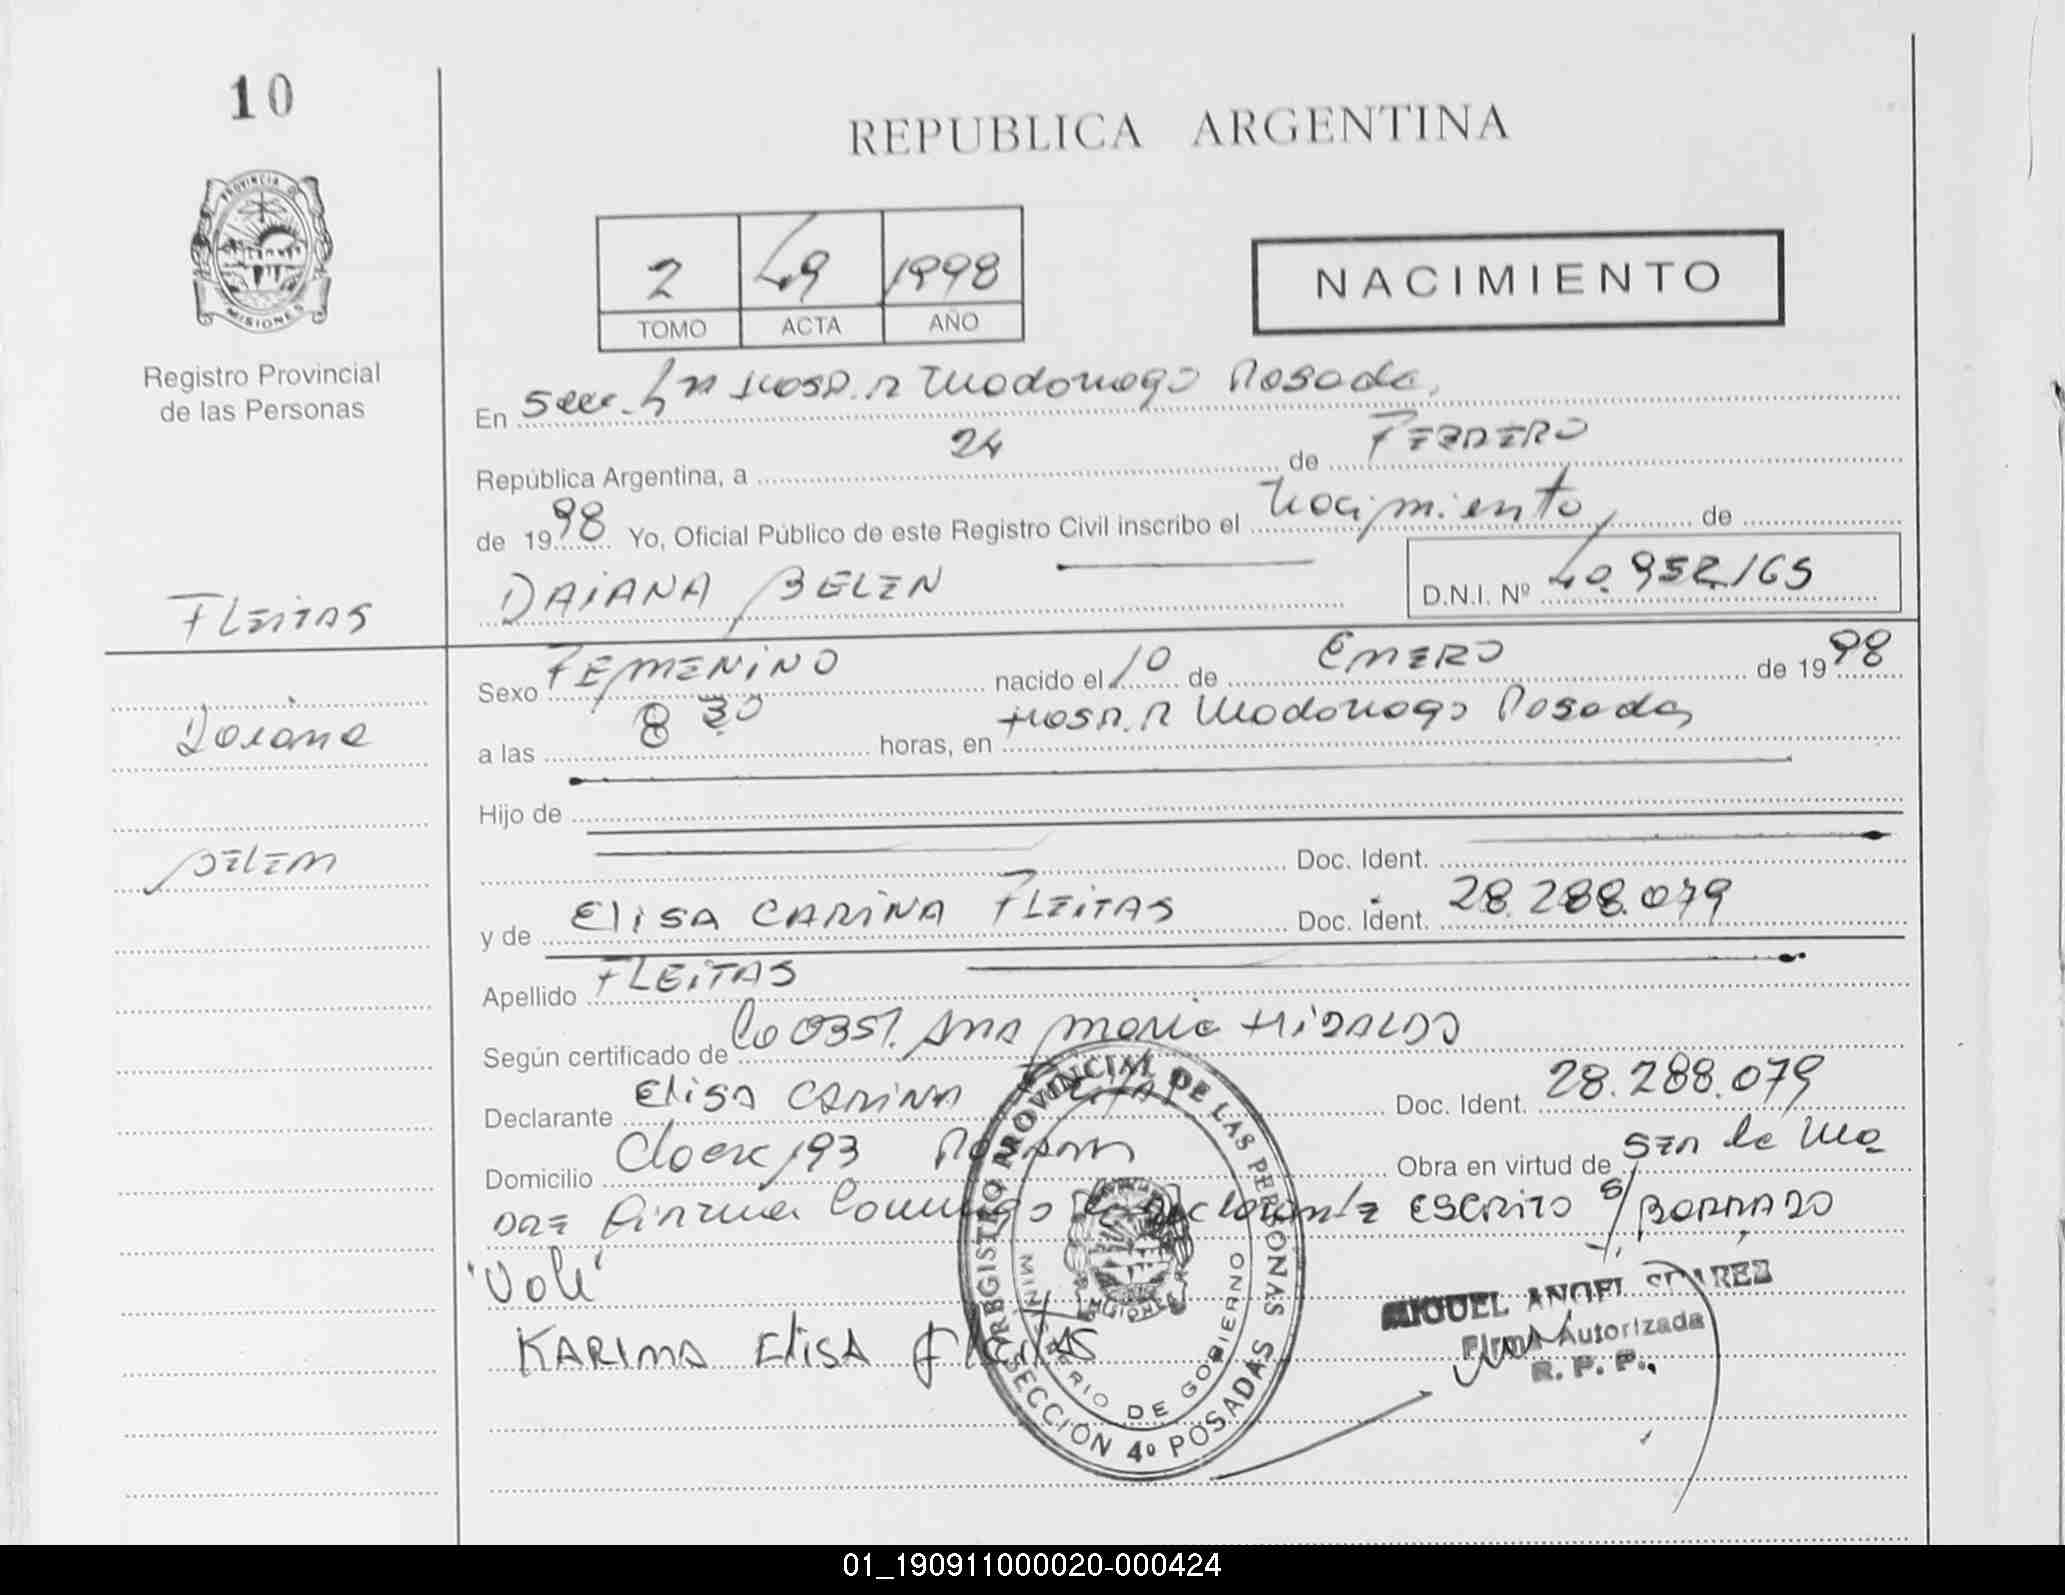 10
REPUBLICA ARGENTINA
PROVINCIA D
MISIONES
2 49 1998
TOMO ACTA AÑO
NACIMIENTO
Registro Provincial
de las Personas
En Secc. Hosp. R Madariaga Posadas,
República Argentina, a 24 de FEBRERO
de 1998 Yo, Oficial Público de este Registro Civil inscribo el Nacimiento, de
DAIANA BELEN D.N.I. Nº 40.952.165
FLEITAS
Sexo FEMENINO nacido el 10 de ENERO de 1998
Daiana
a las 8 30 horas, en Hosp. R Madariaga Posadas
Hijo de
Doc. Ident.
BELEN
y de ELISA CARINA FLEITAS Doc. Ident. 28.288.079
Apellido FLEITAS
Según certificado de la OBST. ANA MARIA HIDALGO
Declarante ELISA CARINA FLEITAS Doc. Ident. 28.288.079
Domicilio 193 Obra en virtud de SER la MA
DRE firma conmigo la declarante ESCRITO S/ BORRADO
"Vale"
KARINA ELISA fleitas
REGISTRO PROVINCIAL DE LAS PERSONAS
MINISTERIO DE GOBIERNO
MISIONES
SECCIÓN 4º POSADAS
MIGUEL ANGEL SUAREZ
Firma Autorizada
R. P. P.
01_190911000020-000424